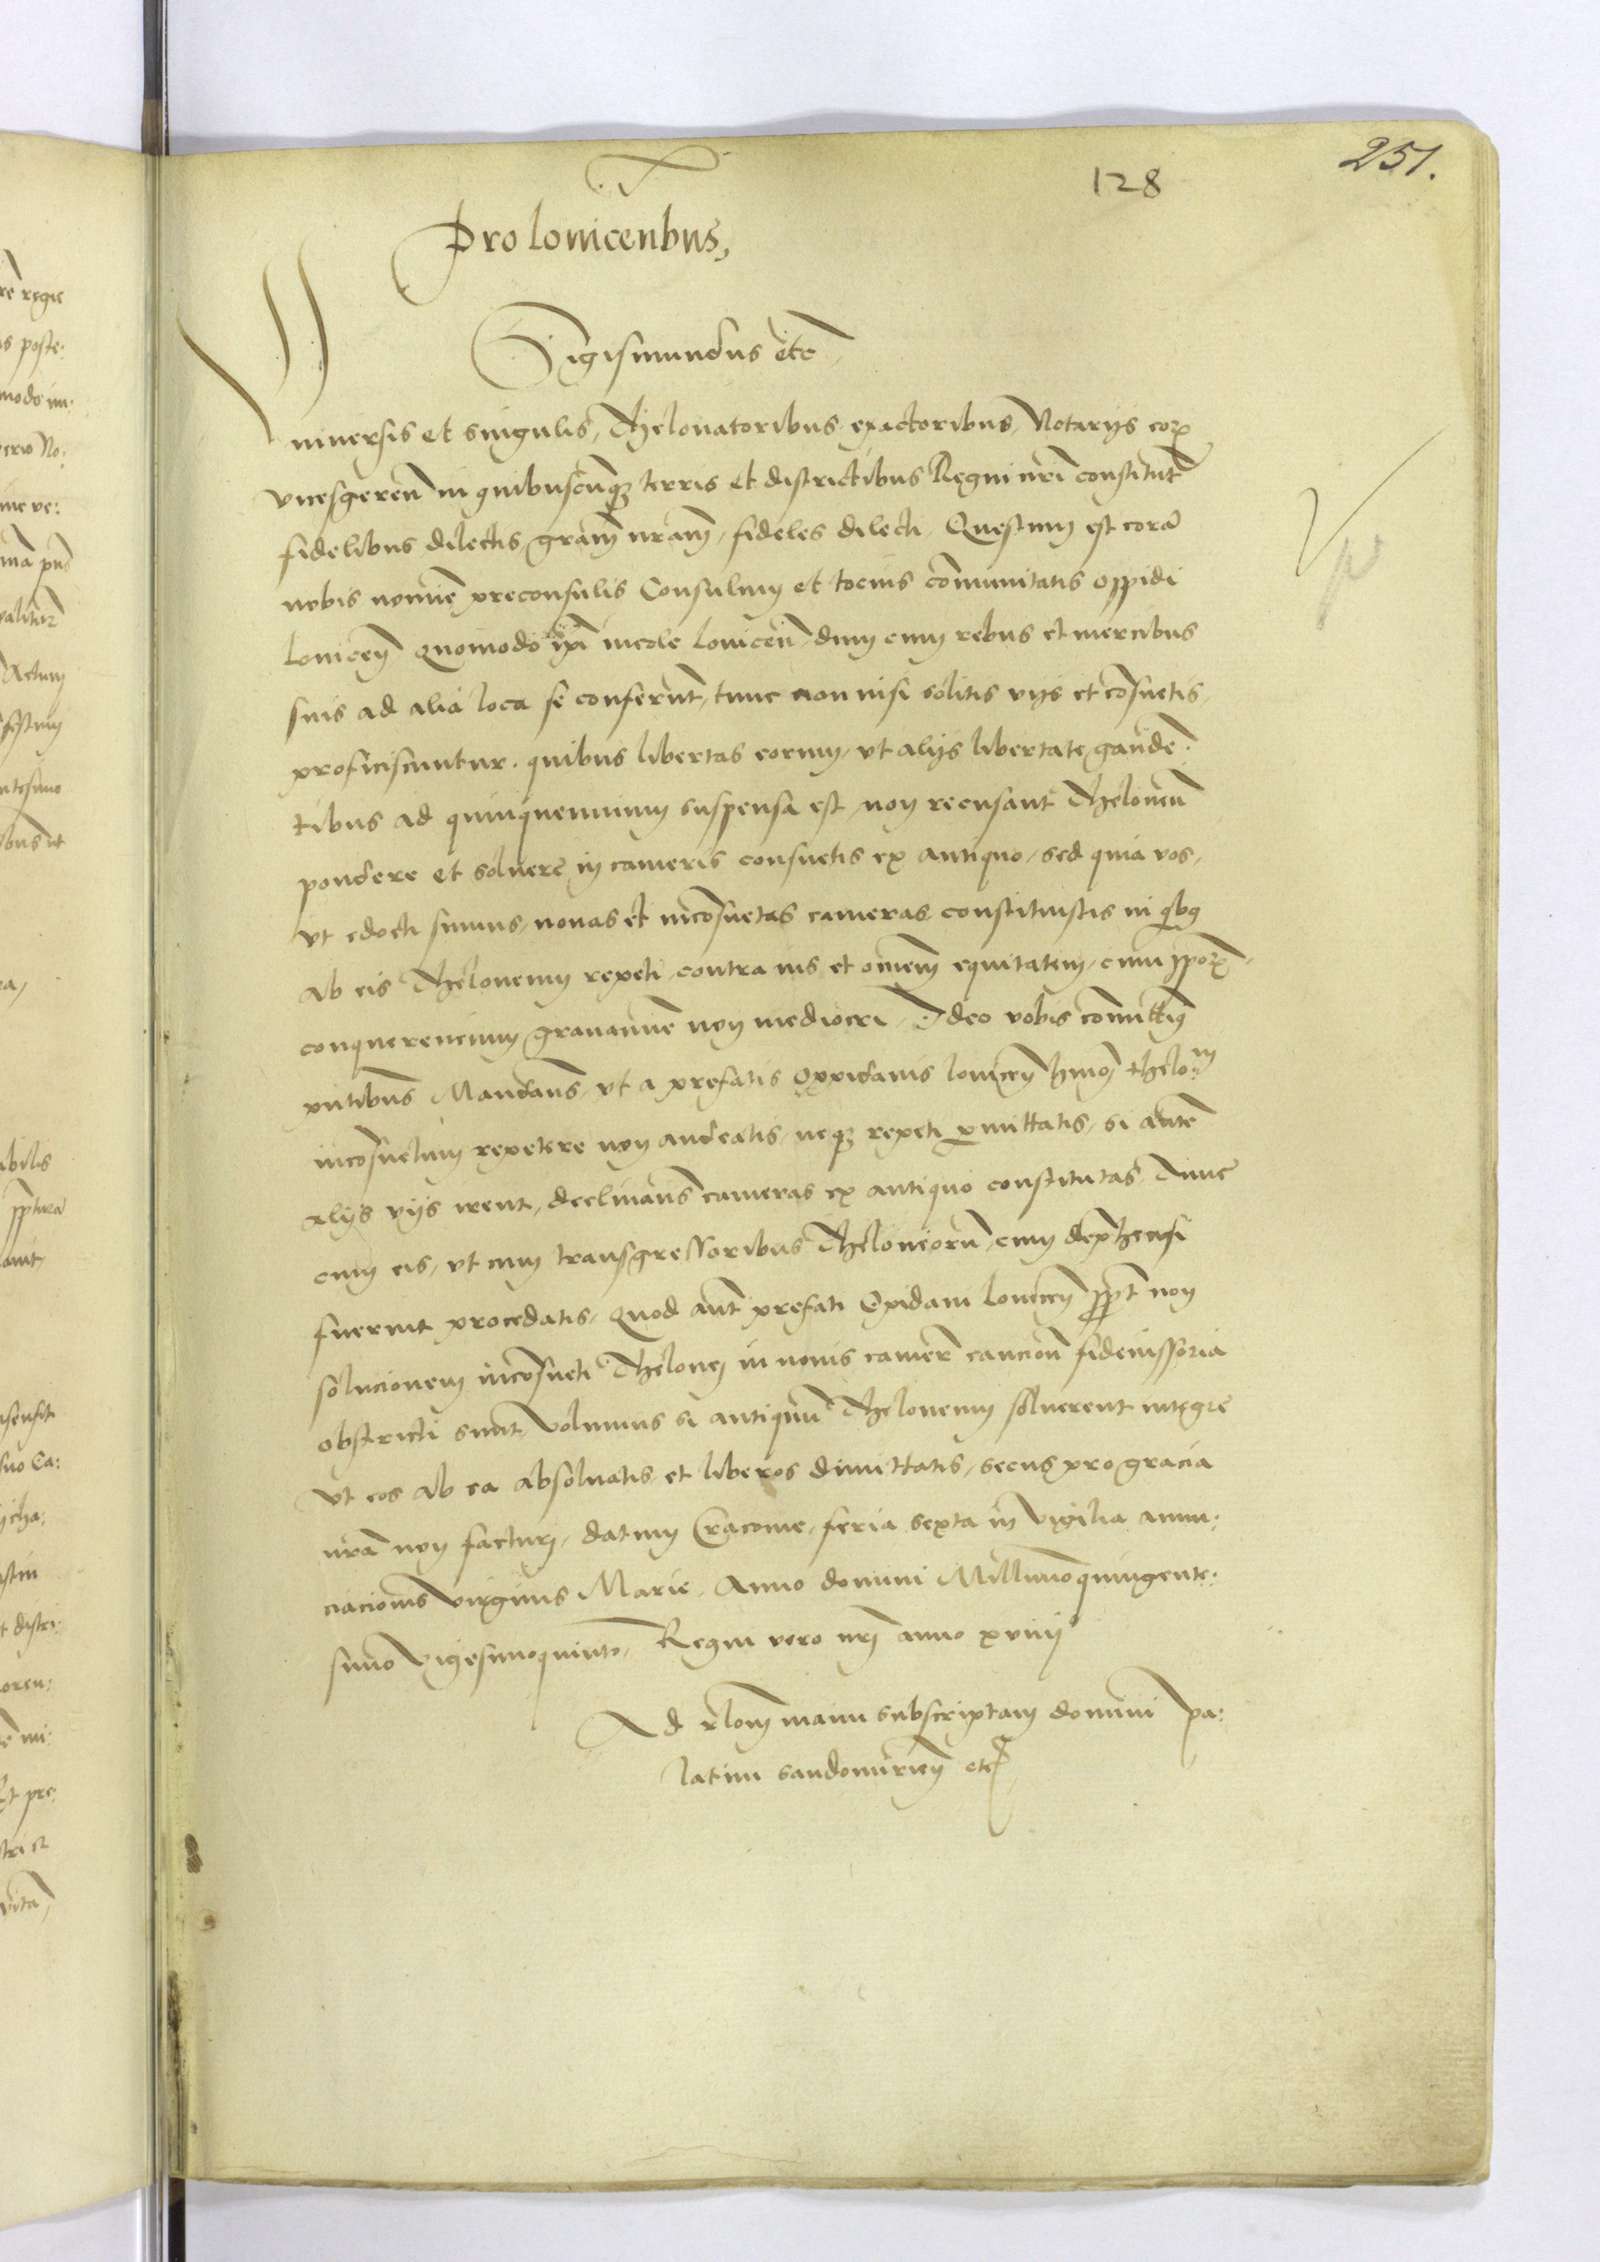 251.
128
Pro lovicenbus,
Sigismundus etc
Universis et singulis, Thelonatoribus exactoribus, Notarijs eorum
vicesgeren in quibuscunque terris et districtibus Regni nri constitut
fidelibus dilectis gram nram, fideles dilecti, Questum est cora
nobis nomine preconsulis Consulum et tocius communitatis oppidi
lovicen quomodo ipi incole lovicen dum cum rebus et mercibus
suis ad alia loca se conferunt, tunc non nisi solitis vijs et cosuetis
proficiscuntur, quibus libertas eorum, ut alijs libertate gaude:
tibus ad quinquennium suspensa est, non recusant Theloneu
pondere et solvere in cameris consuetis ex antiquo, sed quia vos,
ut edocti sumus, novas et incosuetas cameras constituistis in qbus
ab eis Theloneum repeti contra ius et omnem equitatem, cum ipporum
conquerencium gravamine non mediocri, Ideo vobis comittim
pntibus Mandans, ut a prefatis oppidanis lovicen hmoi thelom
incosuetum repetere non audeatis, neque repeti pmittatis, si aute
alijs vijs irent, declinans cameras ex antiquo constitutas, tunc
cum eis, ut cum transgressoribus Theloneorum, cum dephensi
fuerint procedatis, Quod aut prefati Opidani lovicen ppt non
solucionem incosueti Thelonei in novis camer caucion fideiussoria
obstricti sunt, Volumus si antiquu Theloneum solverent integre
ut eos ab ea absolvatis et liberos dimittatis, secus pro gracia
nra non facturi, datum Cracovie, feria sexta in vigilia annu:
ciacionis virginis Marie, Anno domini Millimoquingente:
simo vigesimoquinto, Regni vero nri anno xviiij
Ad rlom manu subscriptam domini pa:
latini sandomirien etc